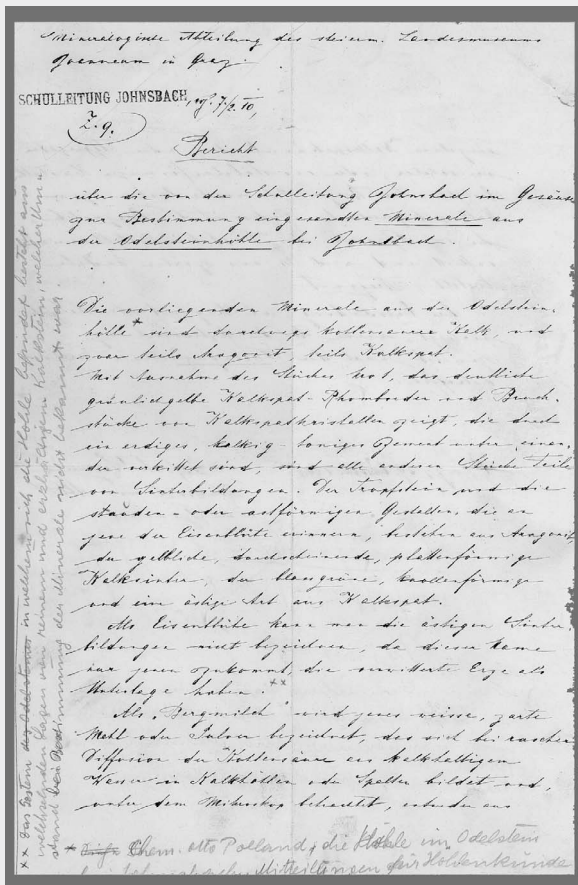 Mineralogische Abteilung des steierm. Landesmuseums
Joanneum in Graz.
SCHULLEITUNG JOHNSBACH,
Z. 9.
Bericht
über die von der Schulleitung Johnsbach im Gesäuse
zur Bestimmung eingesandten Minerale aus
der Odelsteinhöhle bei Johnsbach.
Die vorliegenden Minerale aus der Odelstein-
höhle * sind durchwegs kohlensaurer Kalk, und
zwar teils Aragonit, teils Kalkspat.
Mit Ausnahme des Stückes das deutliche
grünlichgelbe Kalkspat-Rhomboeder und Bruch-
stücke von Kalkspatkristallen zeigt, die durch
ein erdiges, kalkig-toniges Zement unter einan-
der verkittet sind, sind alle anderen Stücke Teile
von Sinterbildungen. Der Tropfstein und die
stauden- oder astförmigen Gestalten, die an
jene der Eisenblüte erinnern, bestehen aus Aragonit,
der gelbliche, durchscheinende, plattenförmige
Kalksinter, der blassgrüne, knollenförmige
und eine ästige Art aus Kalkspat.
Als Eisenblüte kann man die ästigen Sinter-
bildungen nicht bezeichnen, da dieser Name
nur jenen zukommt, die verwitterte Erze als
Unterlage haben. **
Als „Bergmilch" wird jenes weisse, zarte
Mehl oder Pulver bezeichnet, das sich bei rascher
Diffusion der Kohlensäure aus kalkhaltigem
Wasser in Kalkhöhlen oder Spalten bildet und,
unter dem Mikroskop betrachtet, aus
* Chem. Otto Polland, die Höhle im Odelstein
Mitteilungen für Höhlenkunde
** Das Gestein in welchem sich die Höhle befindet besteht aus
wechselnden Lagen von reinem und Kalkstein, welcher Um-
stand bei Bestimmung der Minerale nicht bekannt war.